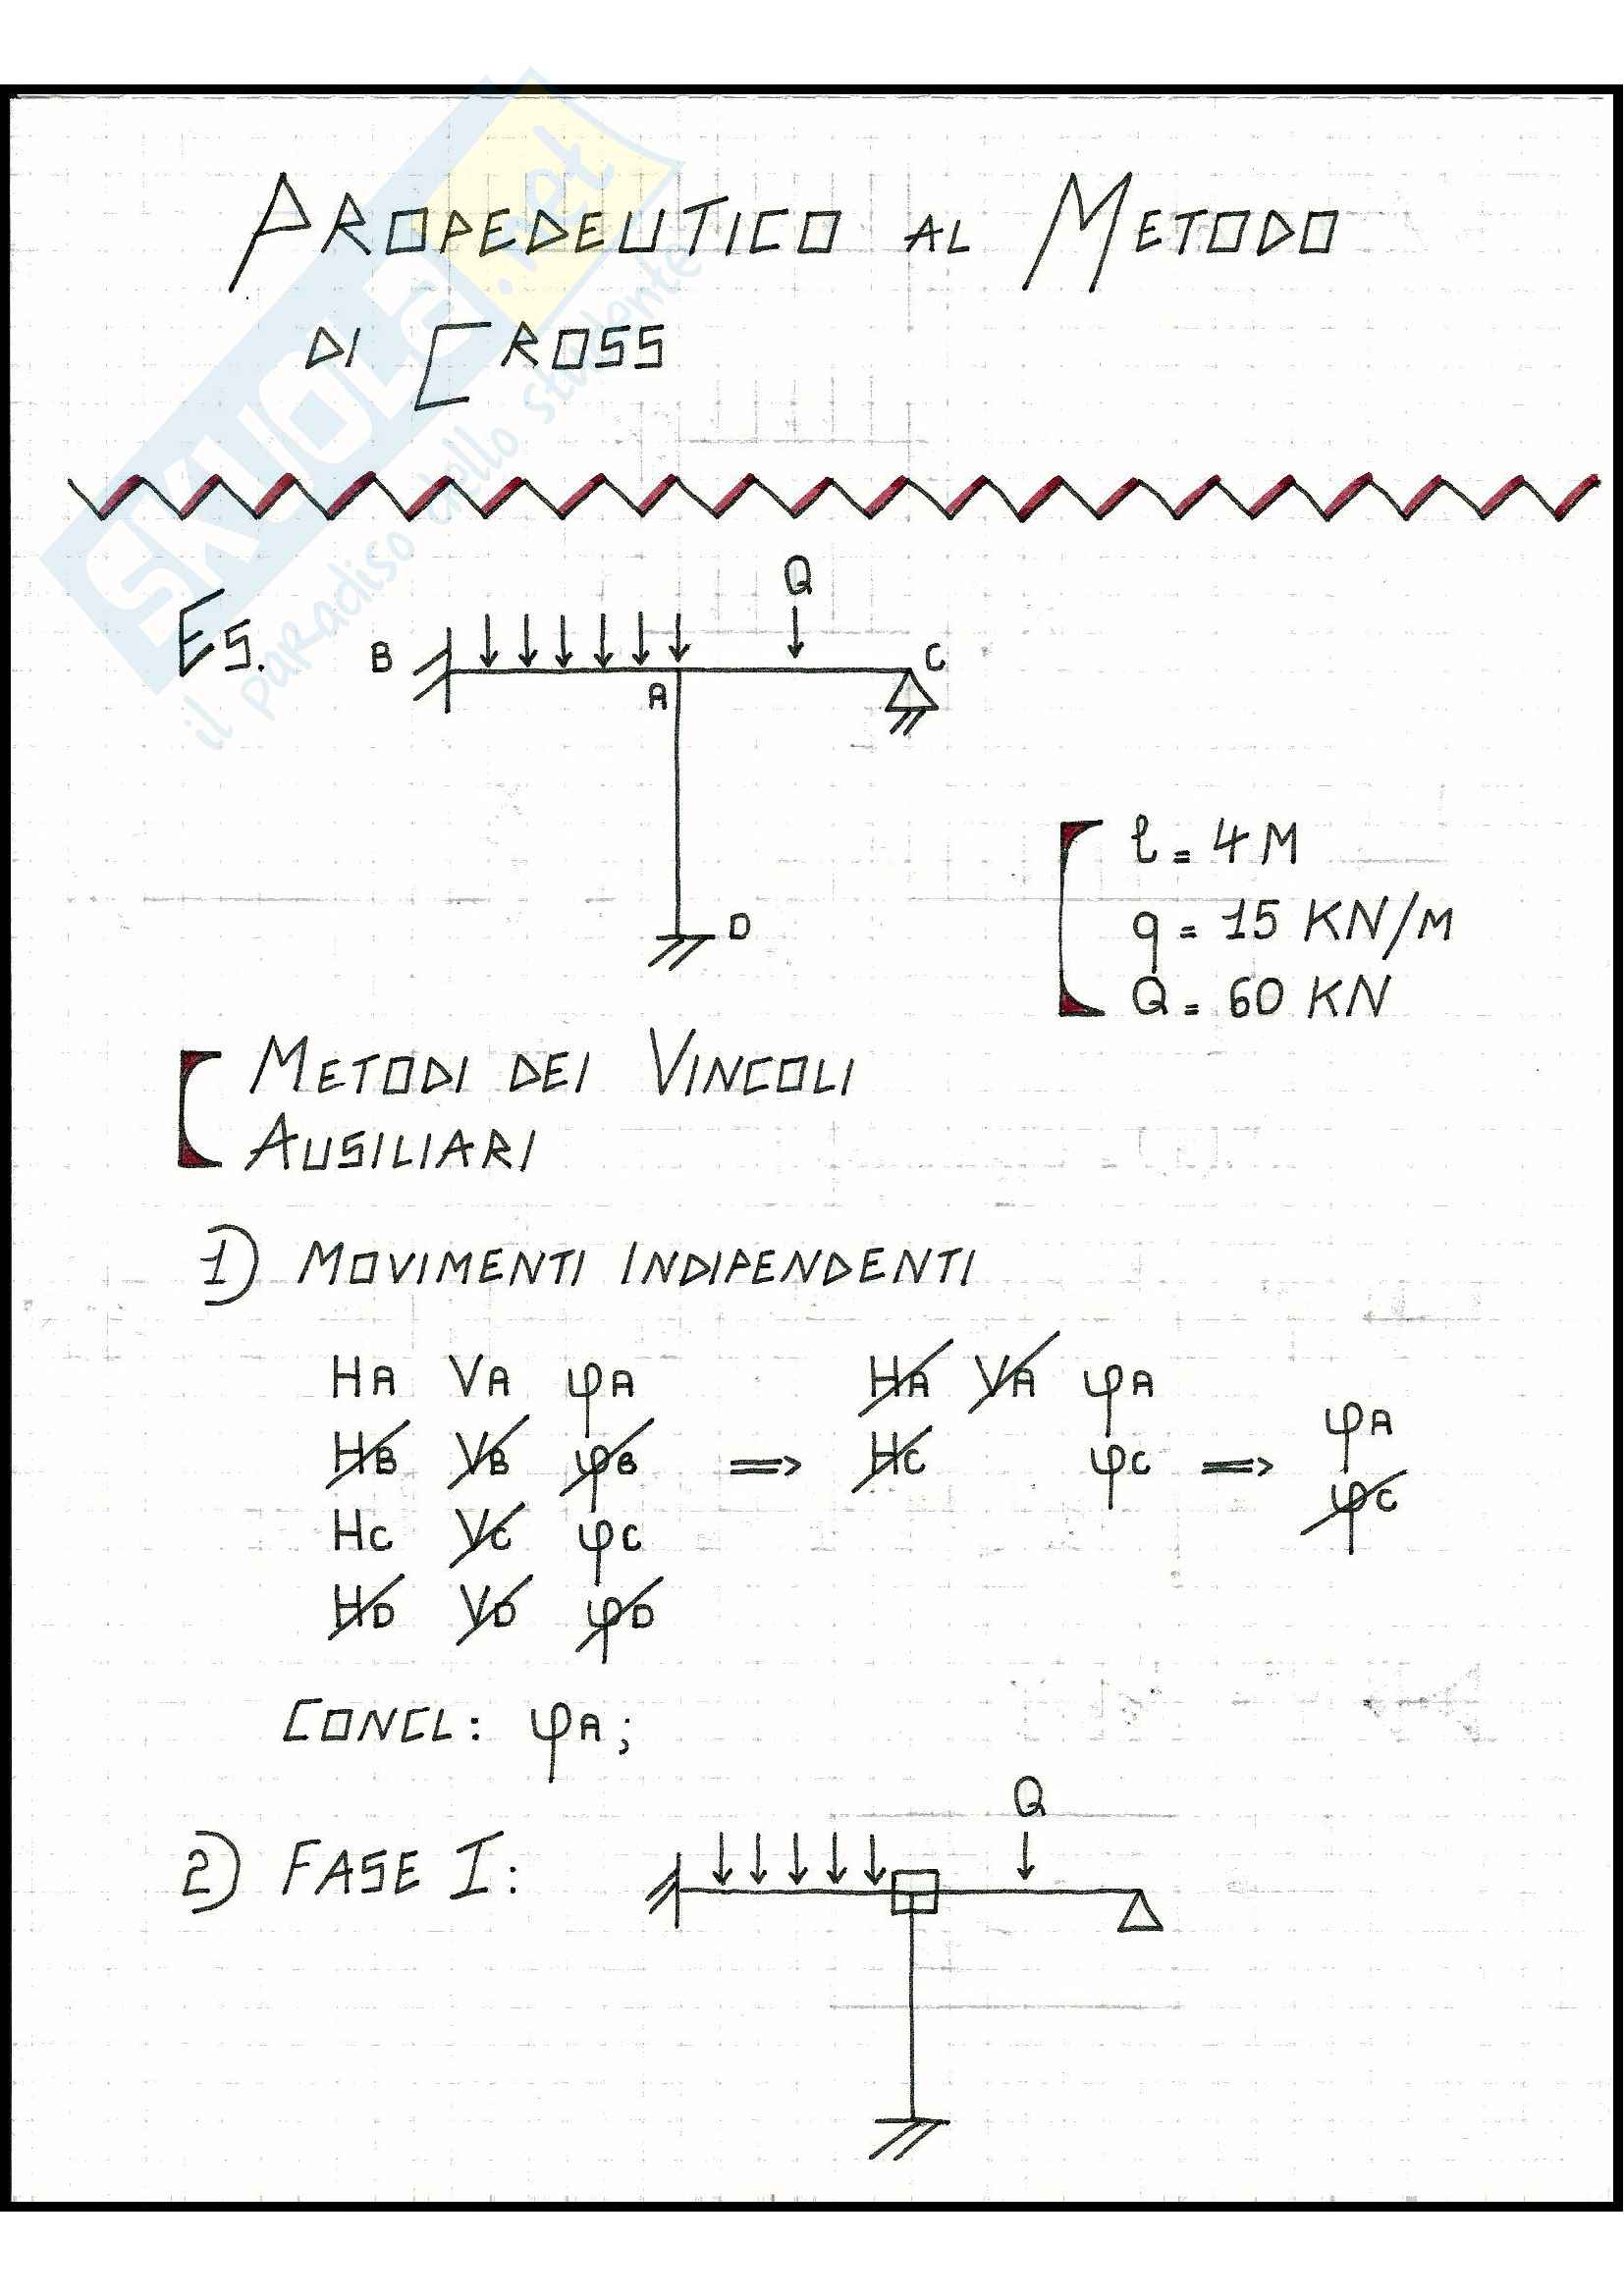 PROPEDEUTICO AL METODO
DI CROSS
SKUOLA.net
il paradiso dello studente
Q
ES. B C
A
D
l = 4 M
q = 15 KN/M
Q = 60 KN
METODI DEI VINCOLI
AUSILIARI
1) MOVIMENTI INDIPENDENTI
HA VA φA HA VA φA
φA
HB VB φB => HC φC =>
φC
HC VC φC
HD VD φD
CONCL: φA;
Q
2) FASE I: